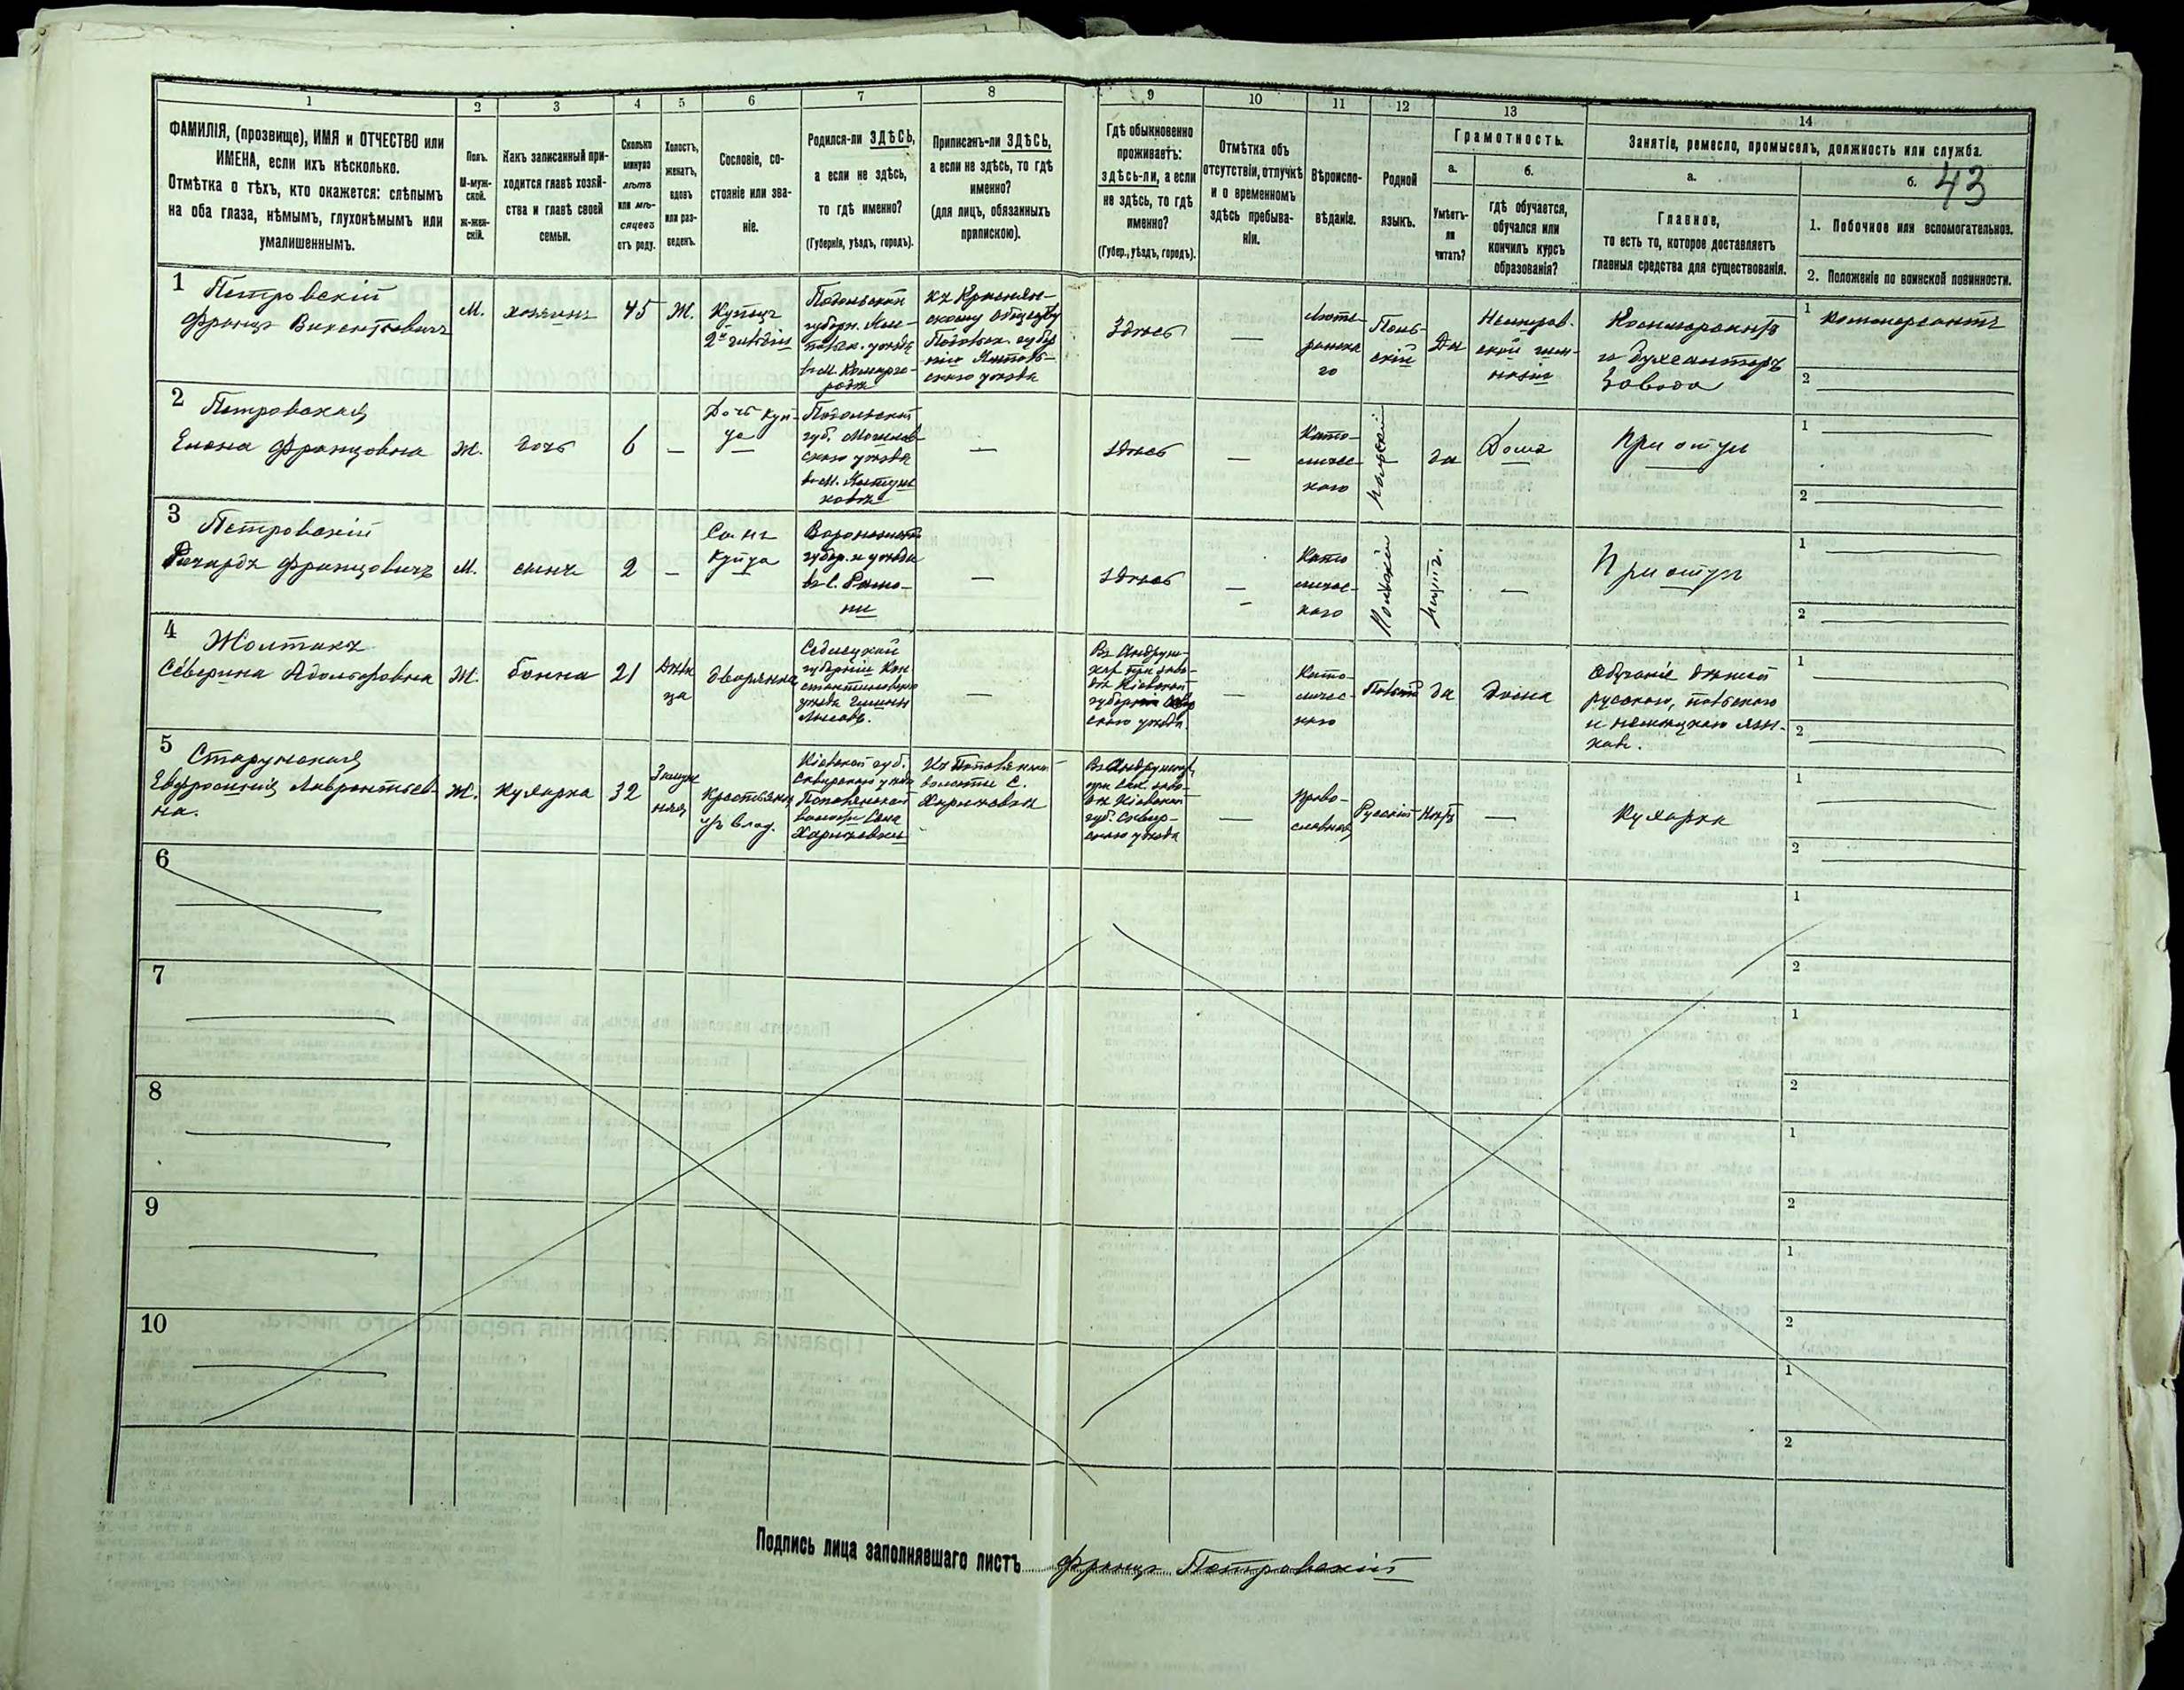 1
2
3
4
5
6
7
8
9
10
11
12
13
14
ФАМИЛІЯ, (прозвище), ИМЯ и ОТЧЕСТВО или
ИМЕНА, если ихъ нѣсколько.
Отмѣтка о тѣхъ, кто окажется: слѣпымъ
на оба глаза, нѣмымъ, глухонѣмымъ или
умалишеннымъ.
Полъ.
М-муж-
ской.
Ж-жен-
скій.
Какъ записанный при-
ходится главѣ хозяй-
ства и главѣ своей
семьи.
Сколько
минуло
лѣтъ
или мѣ-
сяцевъ
отъ роду.
Холостъ,
женатъ,
вдовъ
или раз-
веденъ.
Сословіе, со-
стояніе или зва-
ніе.
Родился-ли ЗДѢСЬ,
а если не здѣсь,
то гдѣ именно?
(Губернія, уѣздъ, городъ).
Приписанъ-ли ЗДѢСЬ,
а если не здѣсь, то гдѣ
именно?
(для лицъ, обязанныхъ
припискою).
Гдѣ обыкновенно
проживаетъ:
здѣсь-ли, а если
не здѣсь, то гдѣ
именно?
(Губер., уѣздъ, городъ).
Отмѣтка объ
отсутствіи, отлучкѣ
и о временномъ
здѣсь пребыва-
ніи.
Вѣроиспо-
вѣданіе.
Родной
языкъ.
Грамотность.
а.
Умѣетъ-
ли
читать?
б.
гдѣ обучается,
обучался или
кончилъ курсъ
образованія?
Занятіе, ремесло, промыселъ, должность или служба.
а.
Главное,
то есть то, которое доставляетъ
главныя средства для существованія.
б.
43
1. Побочное или вспомогательное.
2. Положеніе по воинской повинности.
1
Петровскій
Францъ Викентьевичъ
М.
хозяинъ
45
Ж.
Купецъ
2й гильдіи
Подольской
губерн.
Здѣсь
—
Люте-
ранска
го
Поль-
скій
Да
Немиров-
ской гим-
назіи
и бухгалтеръ
завода
1
2
2
Петровская
Елена Францовна
Ж.
дочь
6
—
Дочь куп-
ца
Подольской
губ. Могилев-
скаго уѣзда
—
здѣсь
—
Като-
личес-
каго
польскій
да
Дома
При отцѣ
1
2
3
Петровскій
Ричардъ Францовичъ
М.
сынъ
2
—
Сынъ
купца
Воронежской
губер. и уѣзда
въ с. Рамо-
ни
—
здѣсь
—
Като
личес-
каго
Польскій
нѣтъ.
—
При отцѣ
1
2
4
Жолтакъ
Северина Адольфовна
Ж.
бонна
21
Дѣви
ца
дворянка
Седлецкой
губерніи Кон
стантиновскаго
уѣзда гмины
—
Въ Андруш-
кѣ при заво-
дѣ Кіевской
губерніи Сквир
скаго уѣзда
—
Като-
личес-
каго
Польскій
да
дома
Обученіе дѣтей
русскаго, польскаго
и немецкаго язы-
ковъ.
1
2
5
Евфросинія Лаврентьев-
на.
Ж.
Кухарка
32
Замуж
няя
Крестьянка
Кіевской губ.
Сквирскаго уѣзда
волости
волости С.
губ. Сквир-
скаго уѣзда
—
Право-
славная
Русскій
Нѣтъ
—
Кухарка
1
2
6
1
2
7
1
2
8
1
2
9
1
2
10
1
2
Подпись лица заполнявшаго листъ Францъ Петровскій